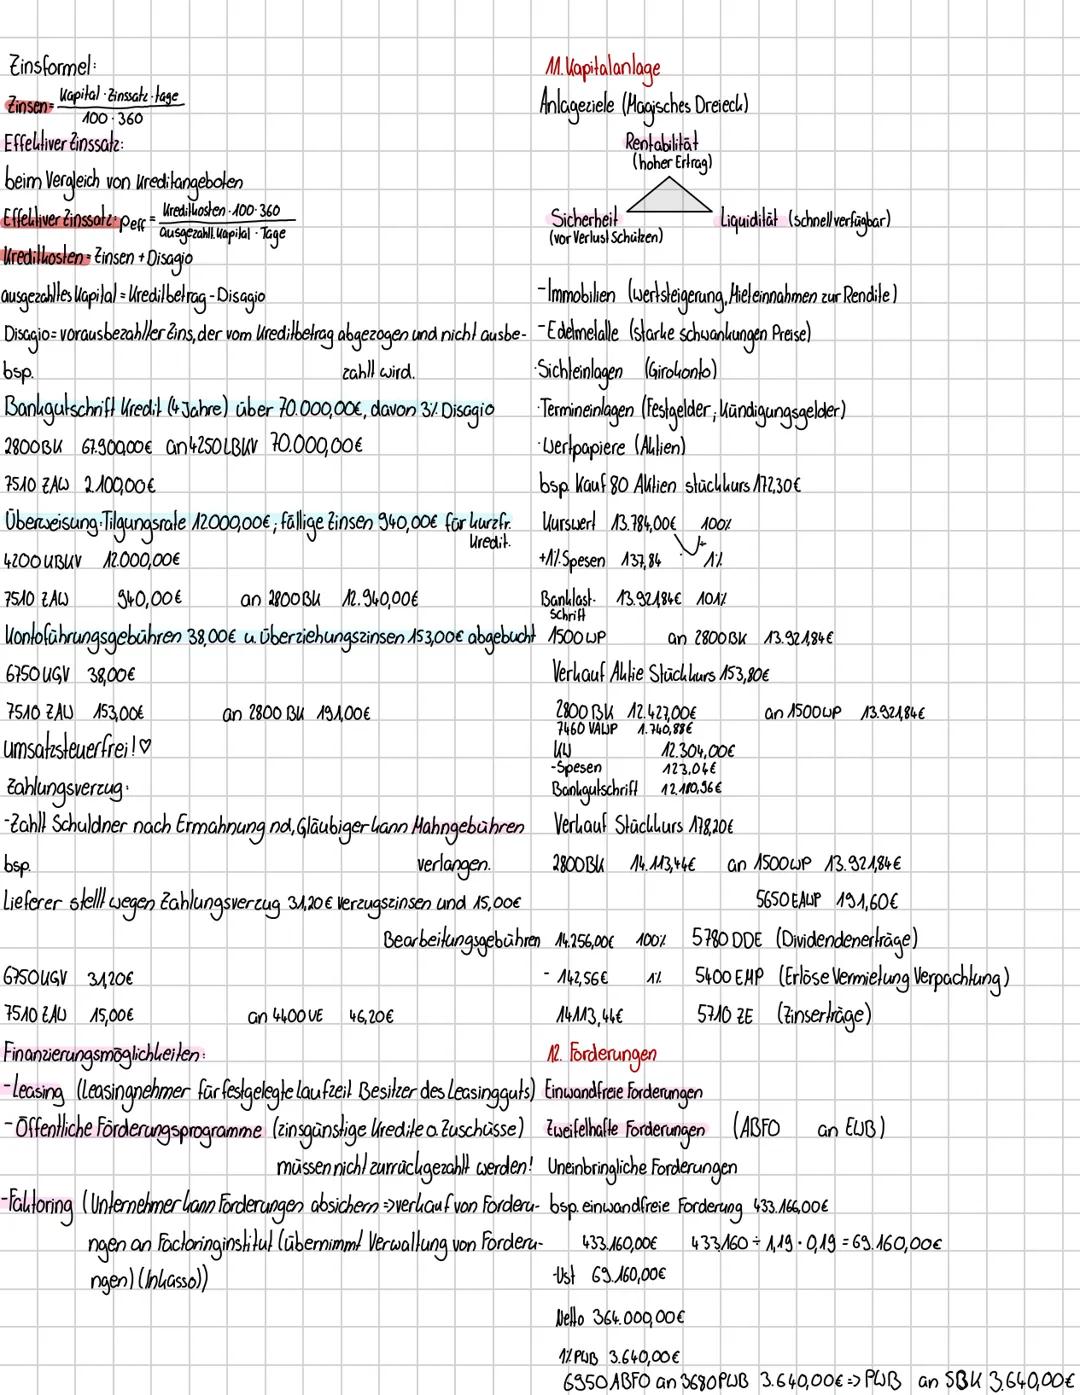 Zinsformel:
Zinsen = Kapital · Zinssatz · tage
100 · 360
Effektiver Zinssatz:
beim Vergleich von Kreditangeboten
Effektiver Zinssatz: peff = Kreditkosten · 100 · 360
ausgezahlt. Kapital · Tage
Kreditkosten = Zinsen + Disagio
ausgezahltes Kapital = Kreditbetrag - Disagio
Disagio = vorausbezahlter Zins, der vom Kreditbetrag abgezogen und nicht ausbe-
zahlt wird.
bsp.
Bankgutschrift Kredit (4 Jahre) über 70.000,00€, davon 3% Disagio
2800 BK 67.900,00€ an 4250 LBKV 70.000,00€
7510 ZAW 2.100,00€
Überweisung: Tilgungsrate 12000,00€; fällige Zinsen 940,00€ für kurzfr.
Kredit.
4200 KBKV 12.000,00€
7510 ZAW 940,00€ an 2800 BK 12.940,00€
Kontoführungsgebühren 38,00€ u. Überziehungszinsen 153,00€ abgebucht
6750 KGV 38,00€
7510 ZAW 153,00€ an 2800 BK 191,00€
umsatzsteuerfrei! ♡
Zahlungsverzug:
-Zahlt Schuldner nach Ermahnung nd, Gläubiger kann Mahngebühren
verlangen.
bsp.
Lieferer stellt wegen Zahlungsverzug 31,20€ Verzugszinsen und 15,00€
Bearbeitungsgebühren
6750 KGV 31,20€
7510 ZAW 15,00€ an 4400 VE 46,20€
Finanzierungsmöglichkeiten:
-Leasing (Leasingnehmer für festgelegte Laufzeit Besitzer des Leasingguts)
-Öffentliche Förderungsprogramme (zinsgünstige Kredite o. Zuschüsse)
müssen nicht zurrückgezahlt werden!
-Faktoring (Unternehmer kann Forderungen absichern => verkauf von Forderu-
ngen an Factoringinstitut (übernimmt Verwaltung von Forderu-
ngen) (Inkasso))
11. Kapitalanlage
Anlageziele (Magisches Dreieck)
Rentabilität
(hoher Ertrag)
Sicherheit Liquidität (schnell verfügbar)
(vor Verlust Schützen)
-Immobilien (wertsteigerung, Mieteinnahmen zur Rendite)
-Edelmetalle (starke schwankungen Preise)
·Sichteinlagen (Girokonto)
·Termineinlagen (Festgelder; Kündigungsgelder)
·Wertpapiere (Aktien)
bsp. Kauf 80 Aktien stückkurs 172,30€
Kurswert 13.784,00€ 100%
+1% Spesen 137,84 1%
Banklast- 13.921,84€ 101%
schrift
1500 WP an 2800 BK 13.921,84€
Verkauf Aktie Stückkurs 153,80€
2800 BK 12.427,00€ an 1500 WP 13.921,84€
7460 VAWP 1.740,88€
KW 12.304,00€
-Spesen 123,04€
Bankgutschrift 12.180,96€
Verkauf Stückkurs 178,20€
2800 BK 14.113,44€ an 1500 WP 13.921,84€
5650 EAWP 191,60€
14.256,00€ 100% 5780 DDE (Dividendenerträge)
- 142,56€ 1% 5400 EMP (Erlöse Vermietung Verpachtung)
14113,44€ 5710 ZE (Zinserträge)
12. Forderungen
Einwandfreie Forderungen
Zweifelhafte Forderungen (ABFO an EWB)
Uneinbringliche Forderungen
bsp. einwandfreie Forderung 433.166,00€
433.160,00€ 433.160 ÷ 1,19 · 0,19 = 69.160,00€
-Ust 69.160,00€
Netto 364.000,00€
1% PWB 3.640,00€
6950 ABFO an 3680 PWB 3.640,00€ => PWB an SBK 3.640,00€